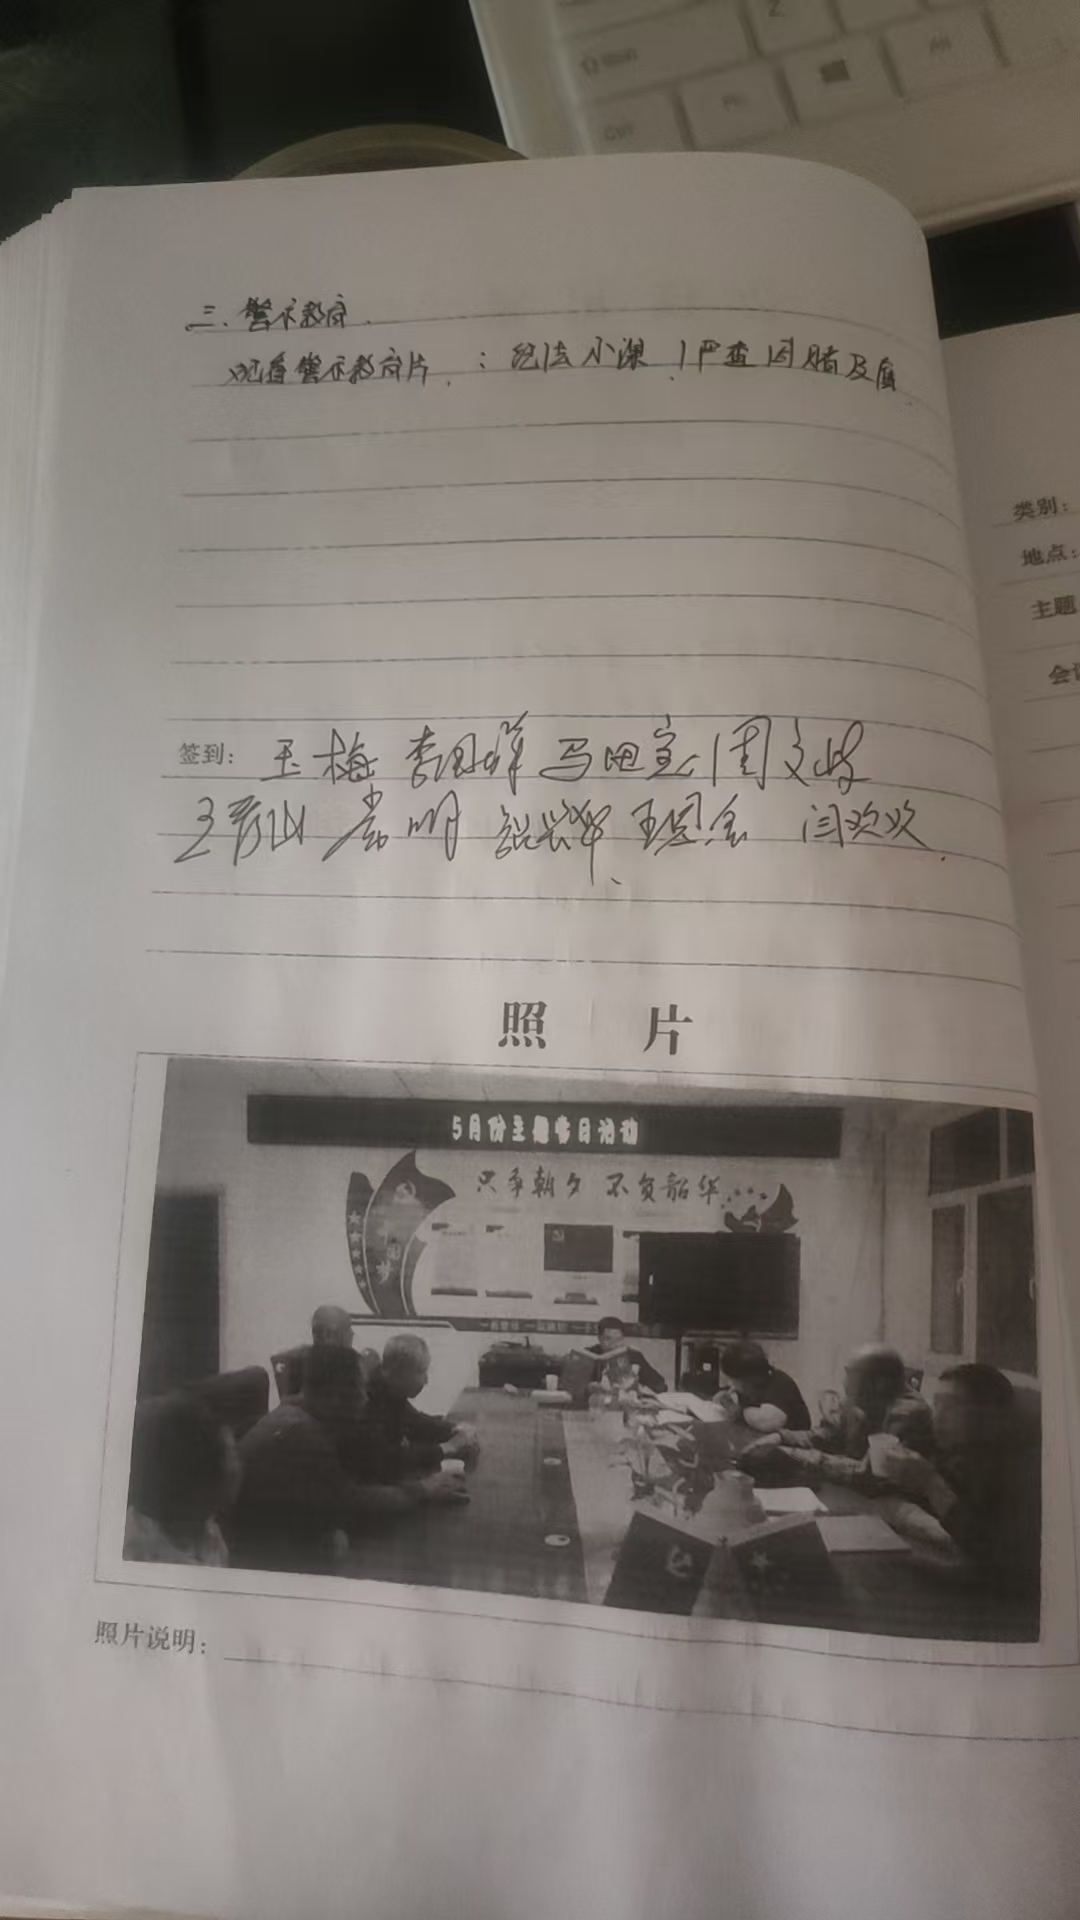 三、警示教育
观看警示教育片：纪法小课 | 严查因赌及腐
签到：王梅 李国祥 马田宝 周文
王彦山 常明 王恩全 闫欢欢
照 片
5月份主题党日活动
只争朝夕 不负韶华
中国梦
照片说明：
类别：
地点：
主题
会议